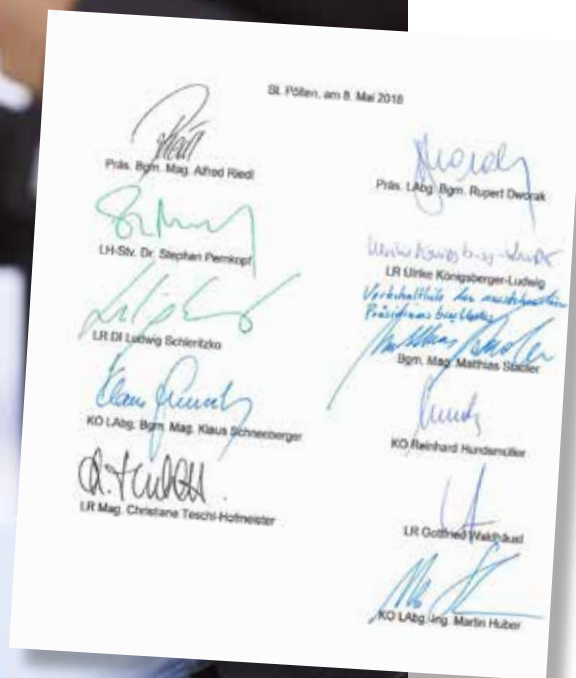 St. Pölten, am 8. Mai 2018
Präs. Bgm. Mag. Alfred Riedl
LH-Stv. Dr. Stephan Pernkopf
LR DI Ludwig Schleritzko
KO LAbg. Bgm. Mag. Klaus Schneeberger
LR Mag. Christiane Teschl-Hofmeister
Präs. LAbg. Bgm. Rupert Dworak
LR Ulrike Königsberger-Ludwig
Vorbehaltlich der
Bgm. Mag. Matthias Stadler
KO Reinhard Hundsmüller
LR Gottfried Waldhäusl
KO LAbg. Ing. Martin Huber